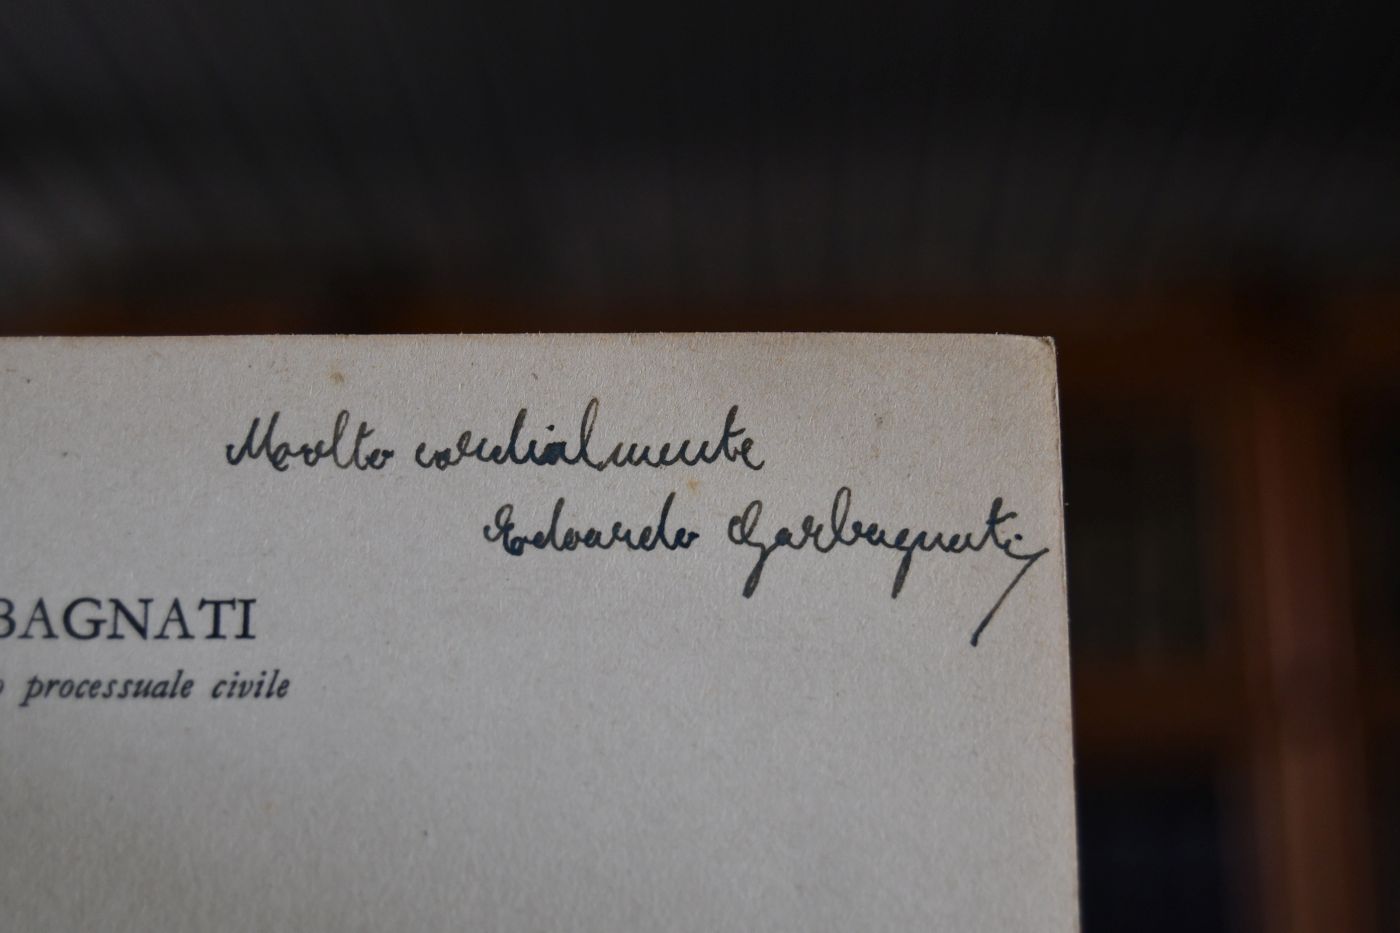 Molto cordialmente
Edoardo Garbagnati
BAGNATI
o processuale civile